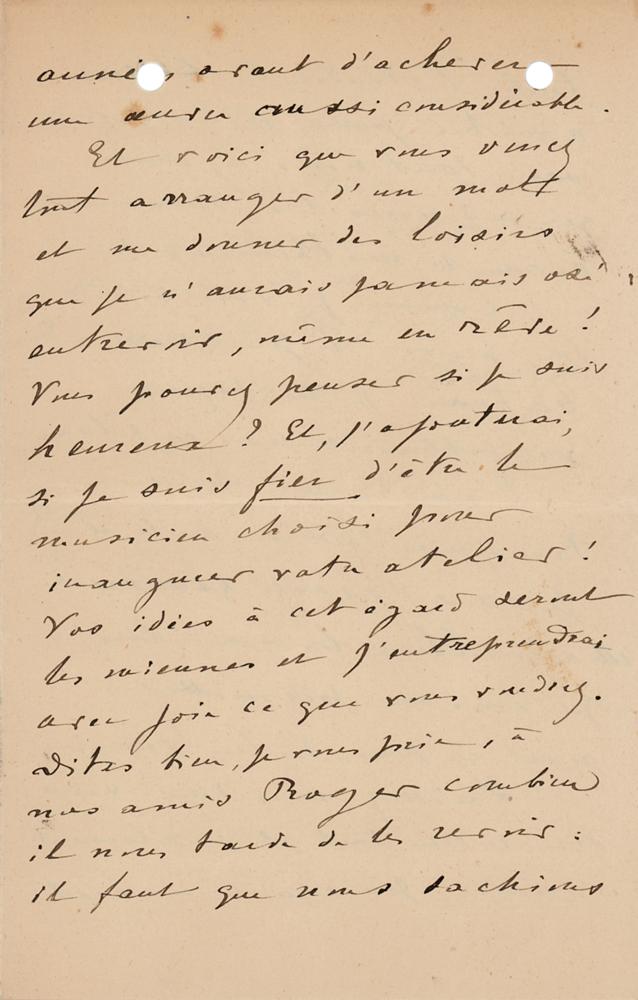 années avant d'achever
une œuvre aussi considérable.
Et voici que vous venez
tout arranger d'un mot
et me donner des loisirs
que je n'aurais jamais osé
entrevoir, même en rêve !
Vous pourez penser si je suis
heureux ? Et, j'ajouterai,
si je suis fier d'être le
musicien choisi pour
inaugurer votre atelier !
Vos idées à cet égard seront
les miennes et j'entreprendrai
avec joie ce que vous voudrez.
Dites bien, je vous prie, à
nos amis Roger combien
il nous tarde de les revoir :
il faut que nous sachions